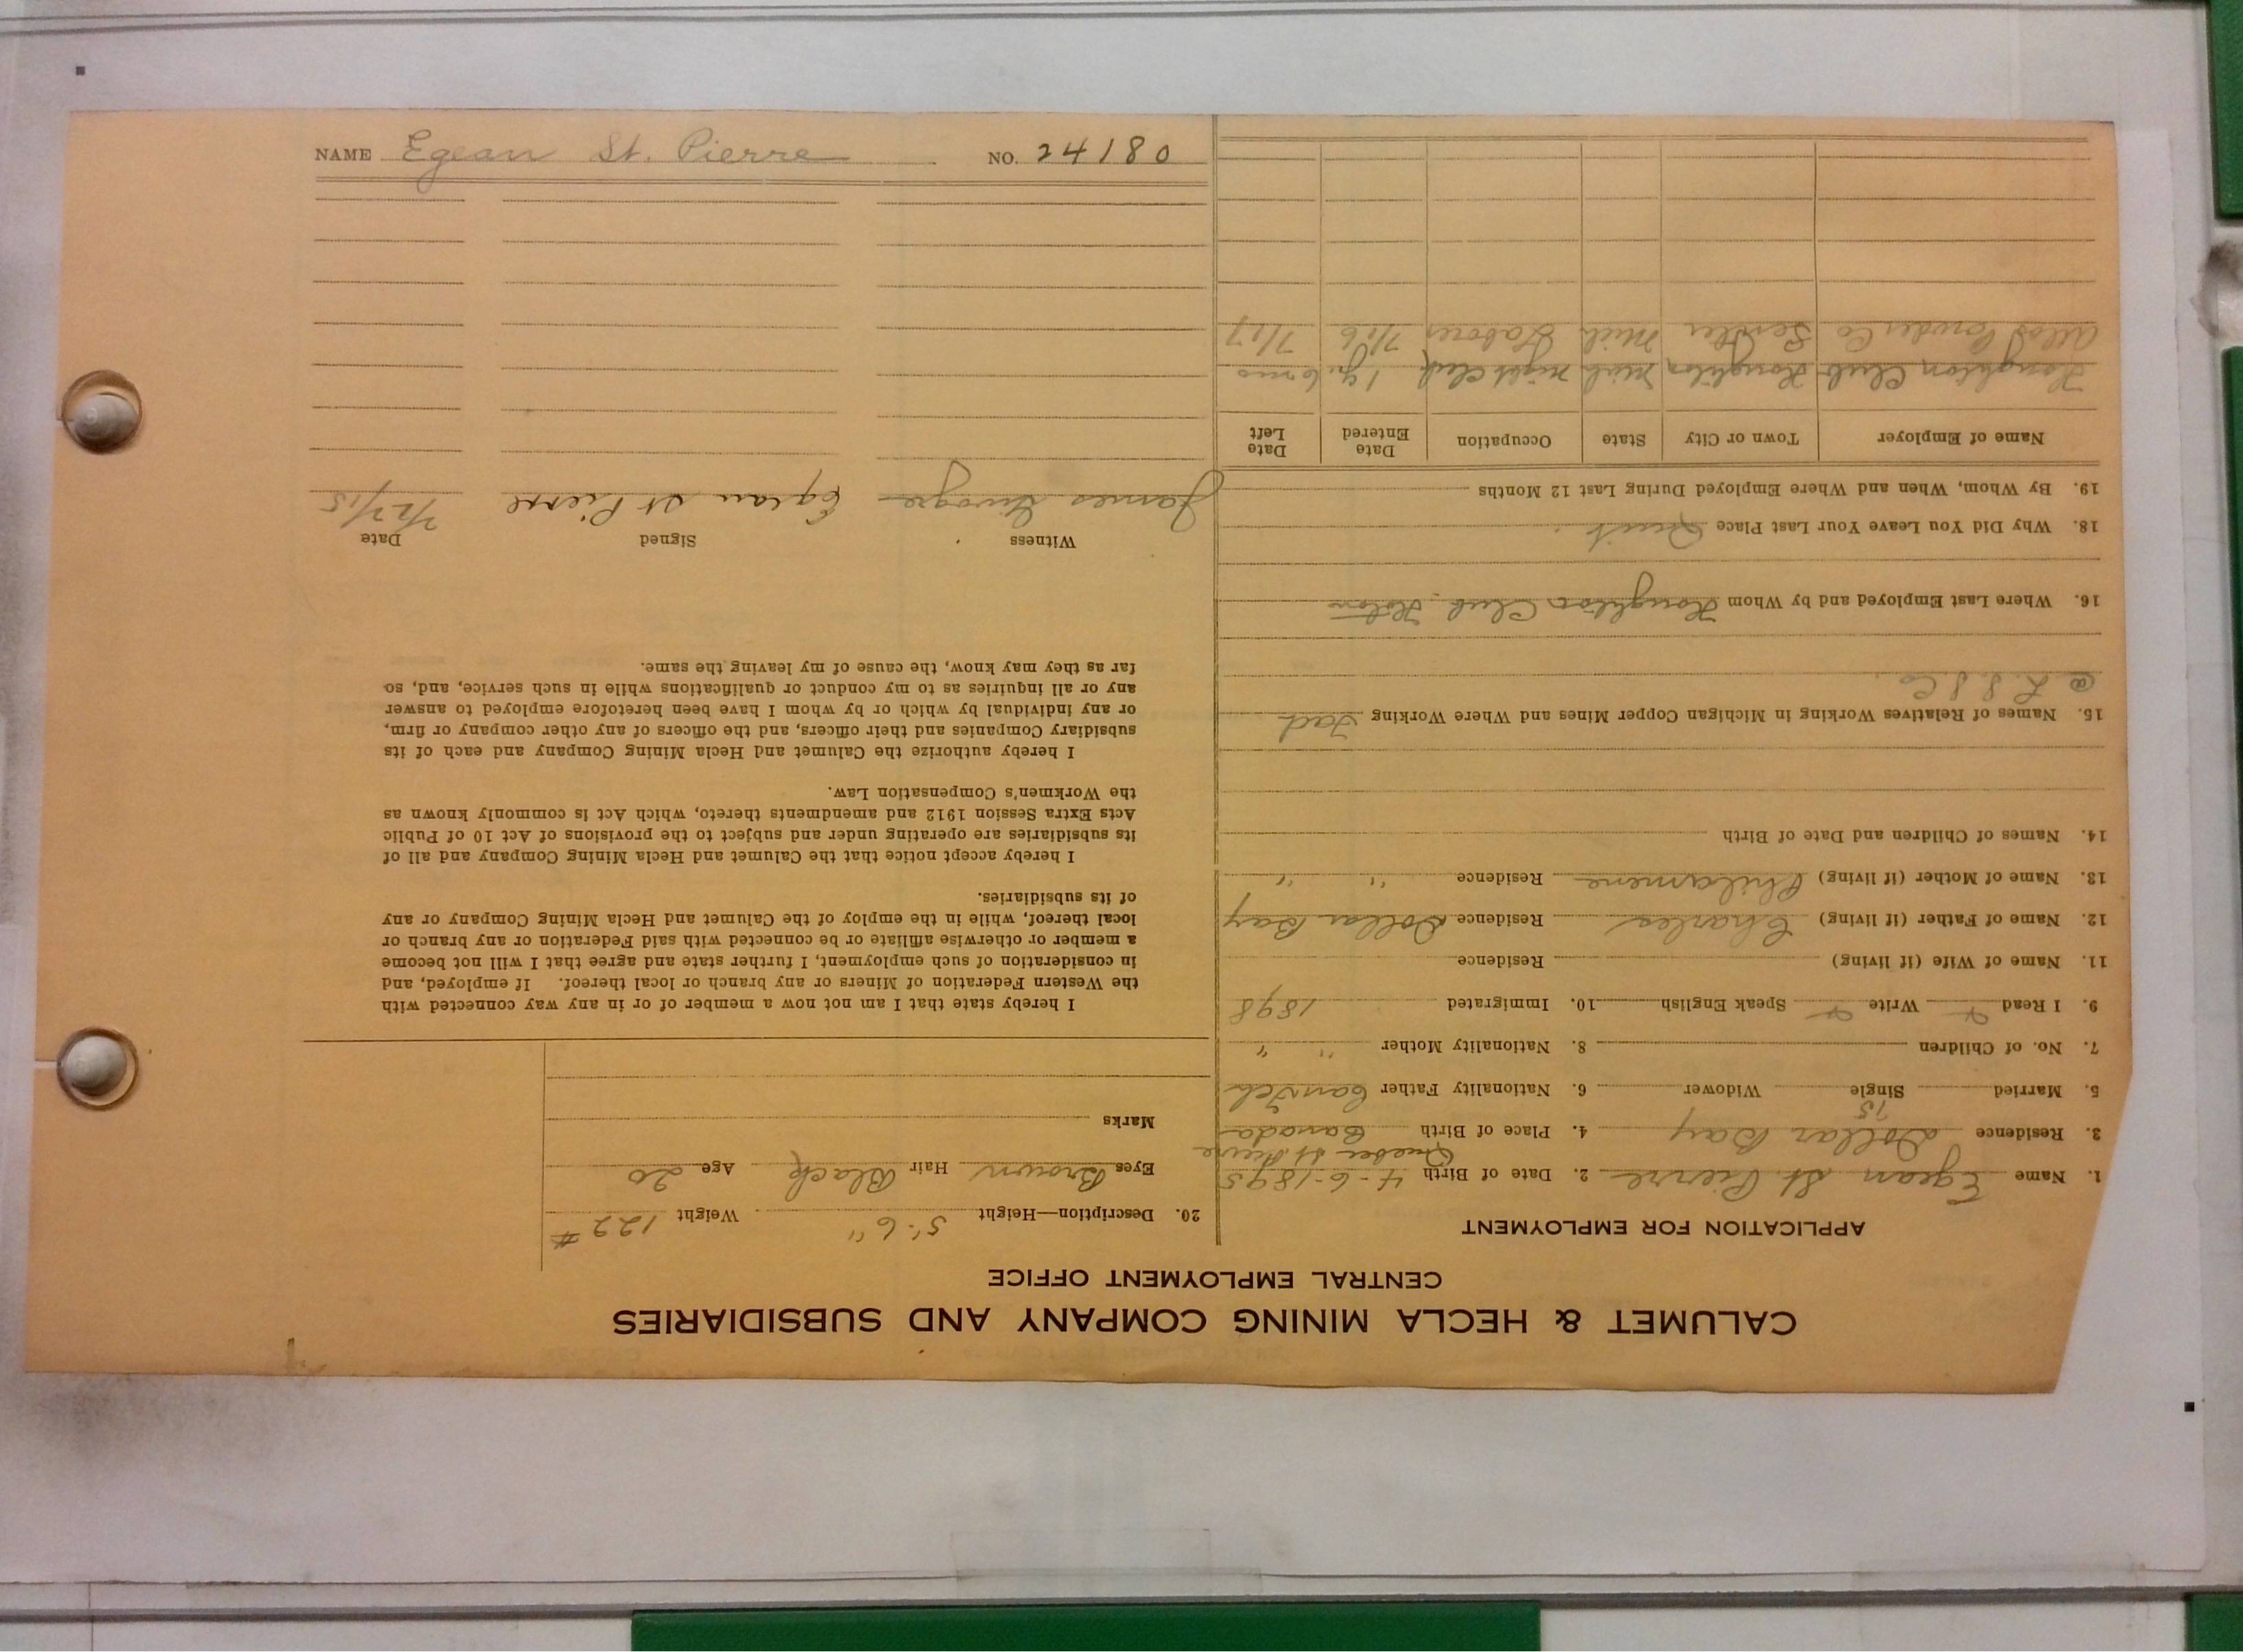 NAME Egean St. Pierre NO. 24180
CALUMET & HECLA MINING COMPANY AND SUBSIDIARIES
CENTRAL EMPLOYMENT OFFICE
APPLICATION FOR EMPLOYMENT
1. Name Egean St. Pierre 2. Date of Birth 4-6-1895
Quebec St. Pierre
3. Residence Dollar Bay 4. Place of Birth Canada
15
5. Married Single Widower 6. Nationality Father
7. No. of Children 8. Nationality Mother " "
9. I Read Write Speak English 10. Immigrated 1898
11. Name of Wife (if living) Residence
12. Name of Father (if living) Charles Residence Dollar Bay
13. Name of Mother (if living) Philamene Residence " "
14. Names of Children and Date of Birth
15. Names of Relatives Working in Michigan Copper Mines and Where Working Dad
@ L. S. S Co.
16. Where Last Employed and by Whom Houghton Club. Hoton
18. Why Did You Leave Your Last Place Quit
19. By Whom, When and Where Employed During Last 12 Months
Name of Employer Town or City State Occupation Date Entered Date Left
Houghton Club Houghton Mich night Clerk 1 y. 6 mo
Powder Co Mich Laborer 7/16 7/17
20. Description—Height 5'. 6" Weight 122 #
Eyes Brown Hair Black Age 20
Marks
I hereby state that I am not now a member of or in any way connected with
the Western Federation of Miners or any branch or local thereof. If employed, and
in consideration of such employment, I further state and agree that I will not become
a member or otherwise affiliate or be connected with said Federation or any branch or
local thereof, while in the employ of the Calumet and Hecla Mining Company or any
of its subsidiaries.
I hereby accept notice that the Calumet and Hecla Mining Company and all of
its subsidiaries are operating under and subject to the provisions of Act 10 of Public
Acts Extra Session 1912 and amendments thereto, which Act is commonly known as
the Workmen's Compensation Law.
I hereby authorize the Calumet and Hecla Mining Company and each of its
subsidiary Companies and their officers, and the officers of any other company or firm,
or any individual by which or by whom I have been heretofore employed to answer
any or all inquiries as to my conduct or qualifications while in such service, and, so
far as they may know, the cause of my leaving the same.
Witness Signed Date
James Egean St Pierre 7/27/15